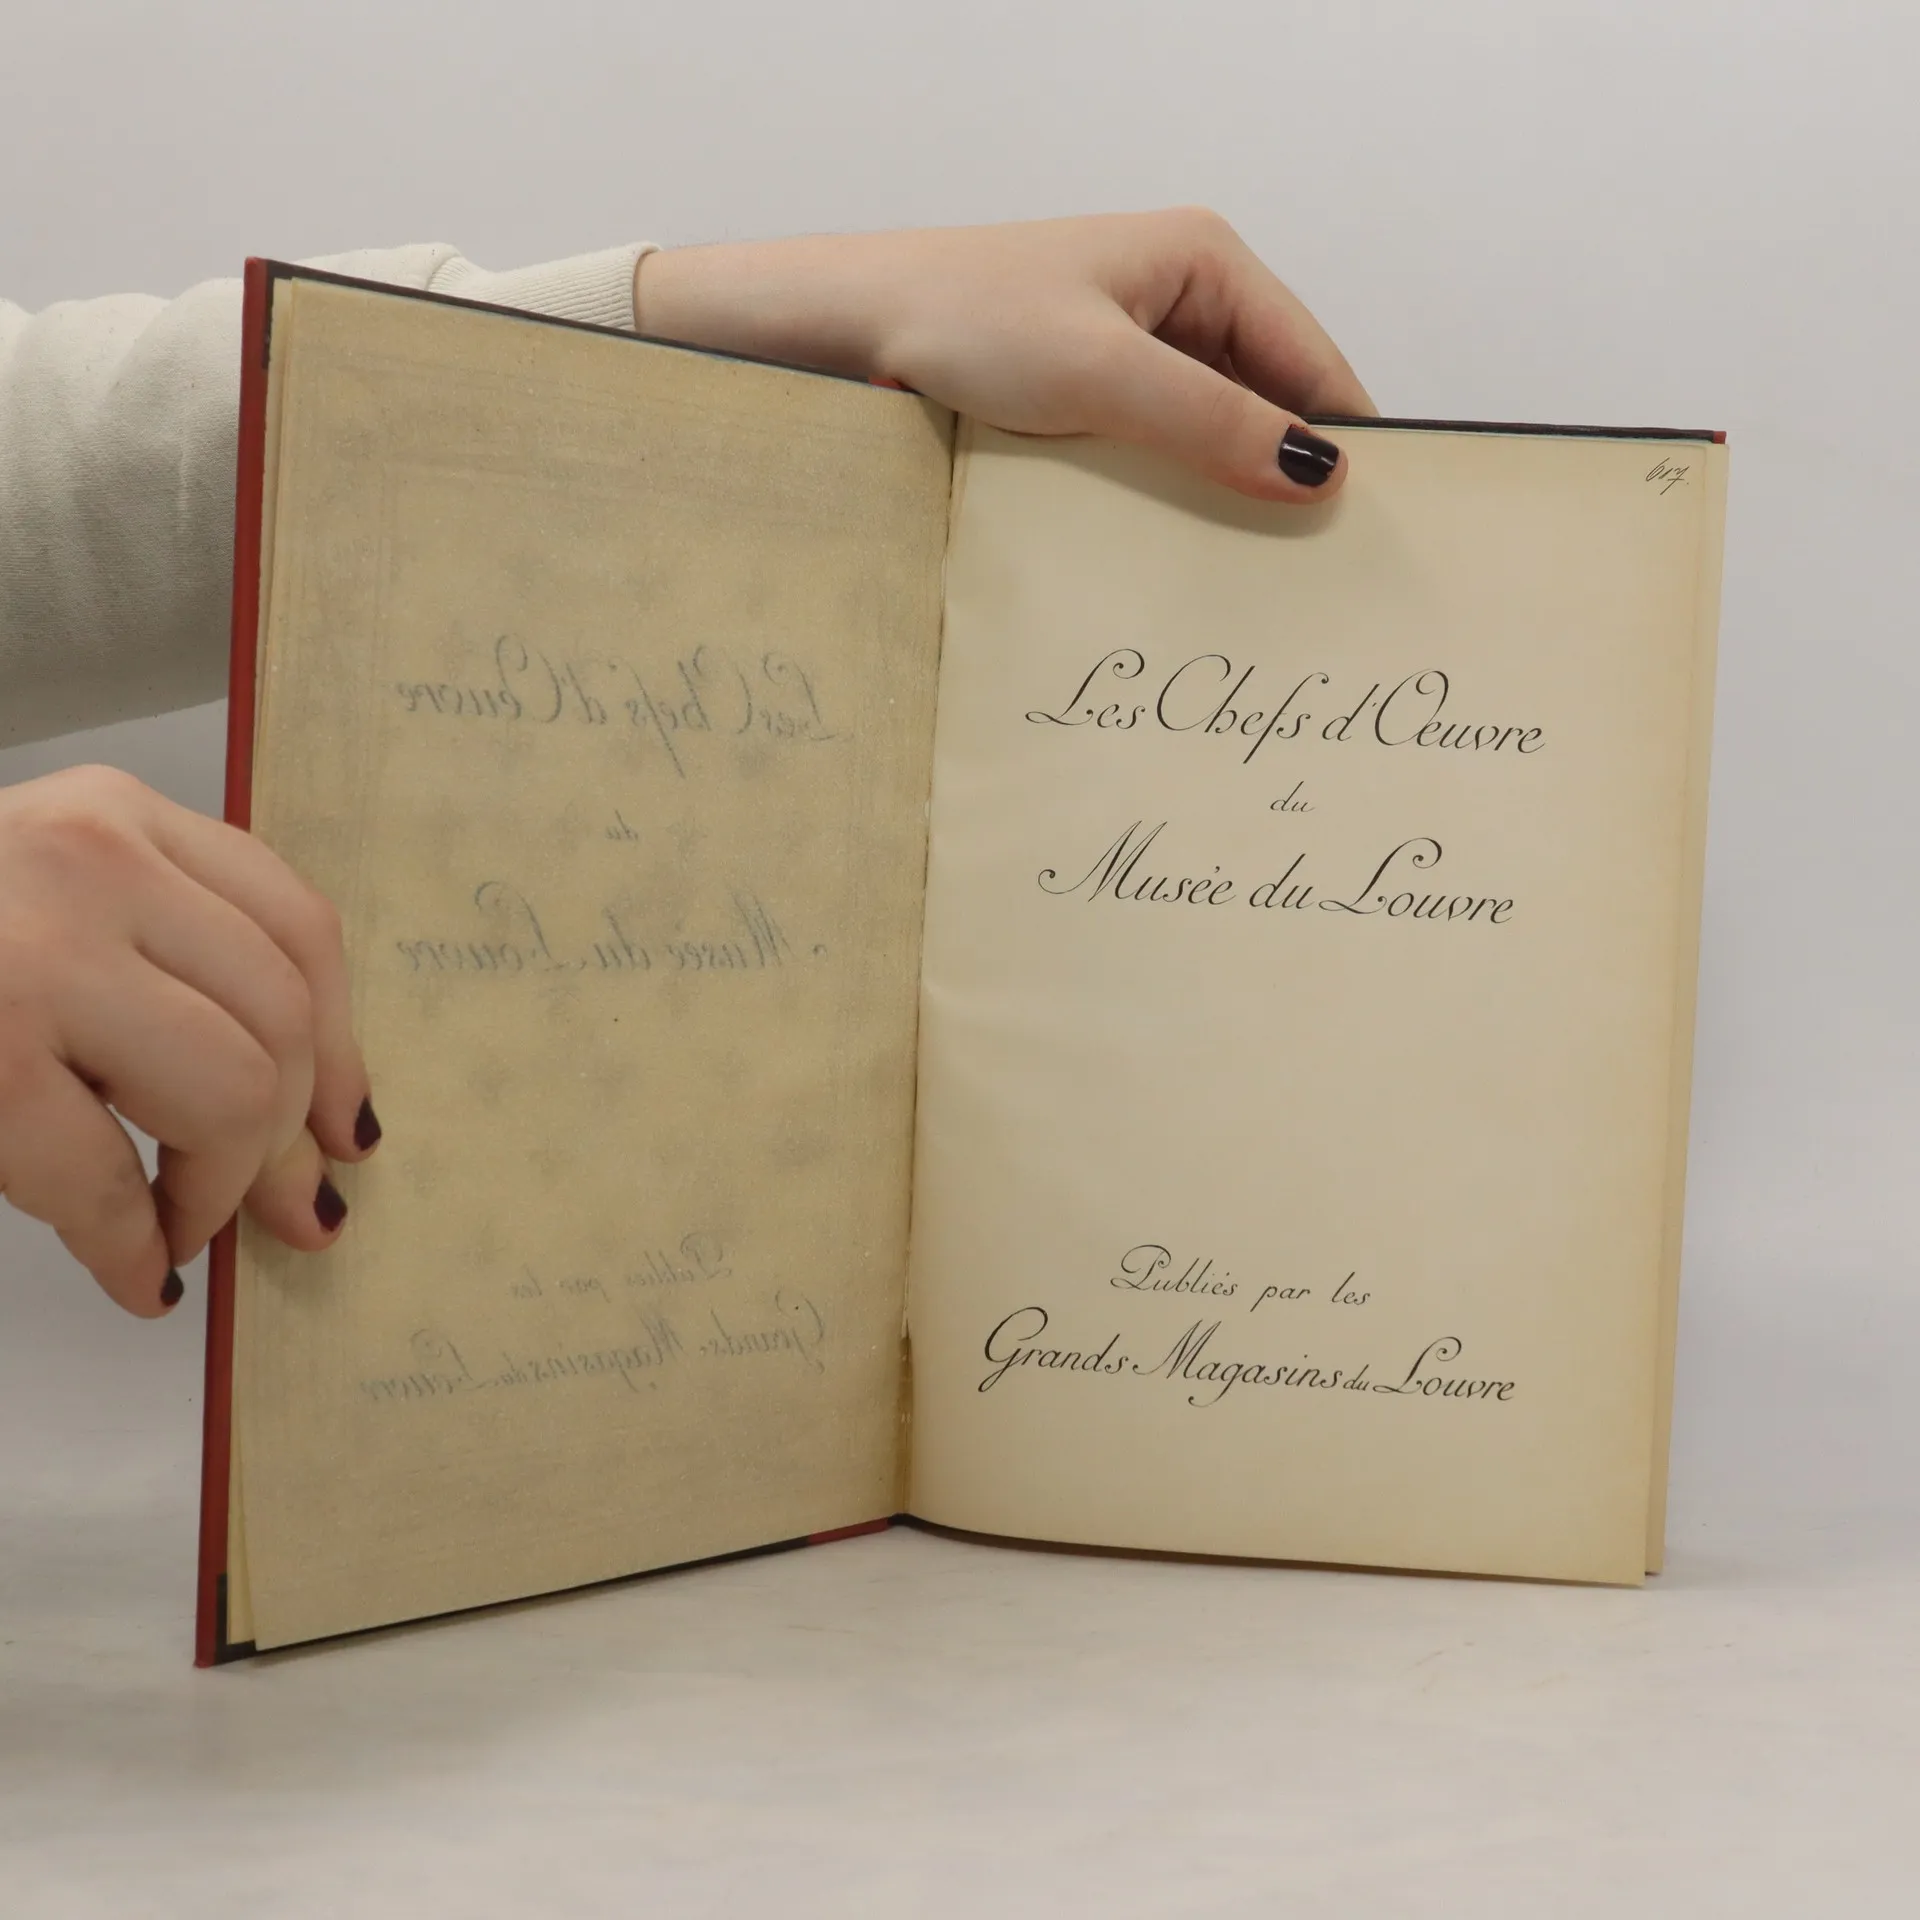 617.
Les Chefs d'Oeuvre
du
Musée du Louvre
Publiés par les
Grands Magasins du Louvre